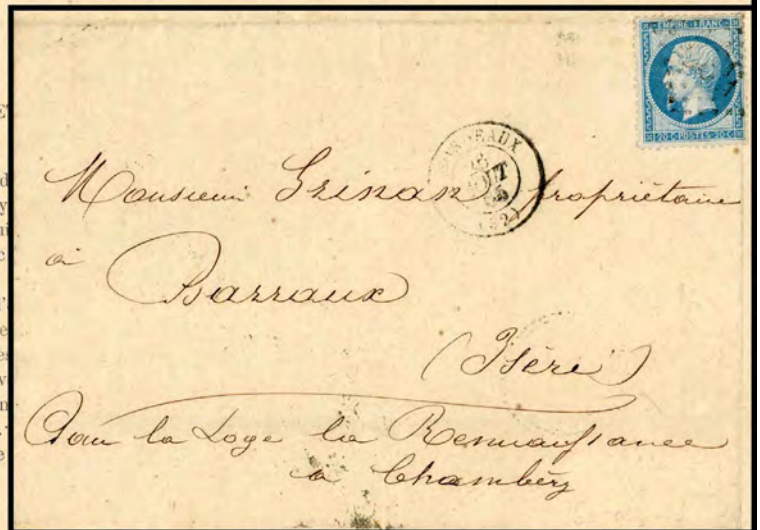 EMPIRE FRANC
20 C POSTES 20 C
BORDEAUX
AOUT
(32)
Monsieur Grinan propriétaire
à
Barraux
(Isère)
Pour la Loge la Renaissance
à Chambéry